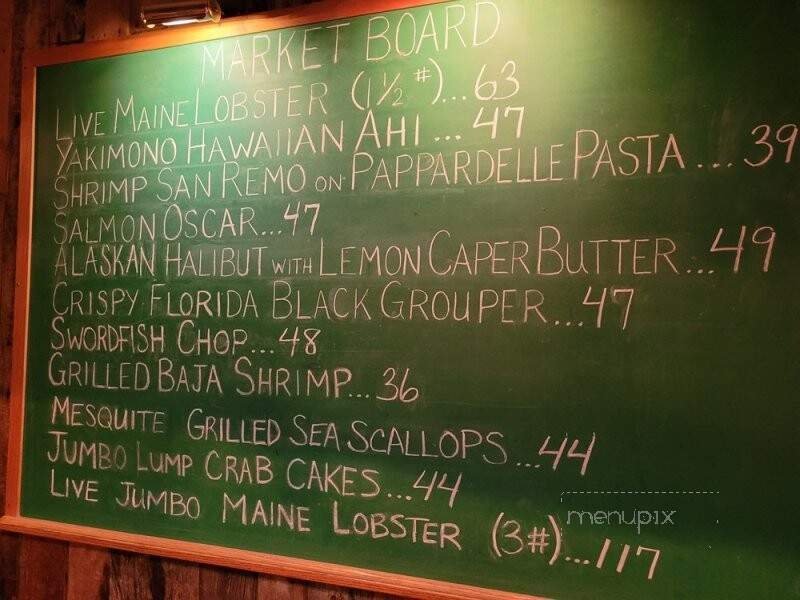 MARKET BOARD
LIVE MAINE LOBSTER (1 1/2 #)...63
YAKIMONO HAWAIIAN AHI...47
SHRIMP SAN REMO ON PAPPARDELLE PASTA...39
SALMON OSCAR...47
ALASKAN HALIBUT WITH LEMON CAPER BUTTER...49
CRISPY FLORIDA BLACK GROUPER...47
SWORDFISH CHOP...48
GRILLED BAJA SHRIMP...36
MESQUITE GRILLED SEA SCALLOPS...44
JUMBO LUMP CRAB CAKES...44
LIVE JUMBO MAINE LOBSTER (3#)...117
menupix